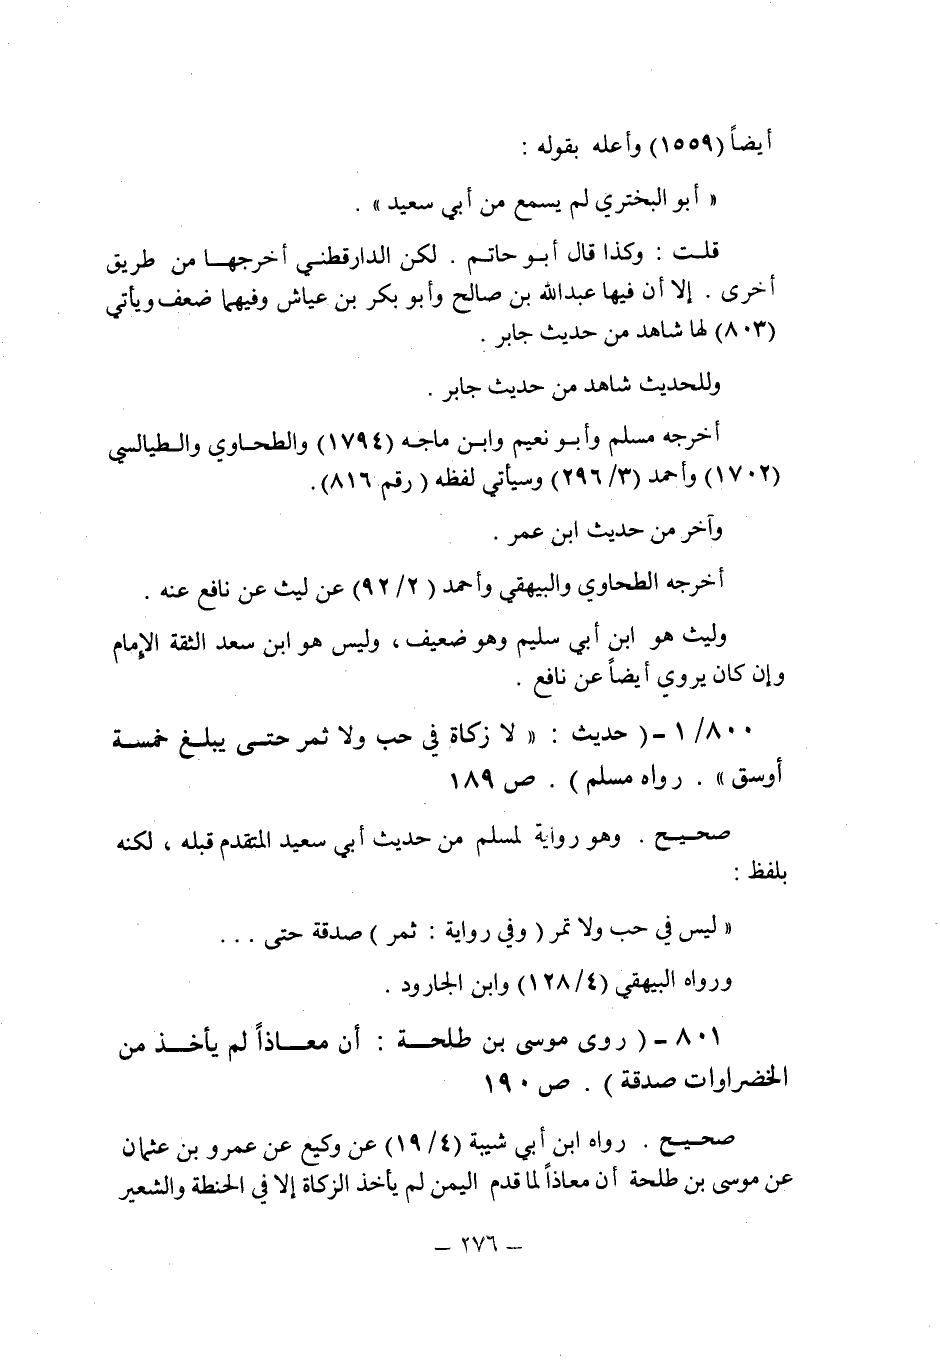 أيضاً (١٥٥٩) وأعله بقوله :
« أبو البختري لم يسمع من أبي سعيد » .
قلت : وكذا قال أبو حاتم . لكن الدارقطني أخرجها من طريق
أخرى . إلا أن فيها عبدالله بن صالح وأبو بكر بن عياش وفيهما ضعف ويأتي
(٨٠٣) لها شاهد من حديث جابر .
وللحديث شاهد من حديث جابر .
أخرجه مسلم وأبو نعيم وابن ماجه (١٧٩٤) والطحاوي والطيالسي
(١٧٠٢) وأحمد (٣/ ٢٩٦) وسيأتي لفظه ( رقم ٨١٦).
وآخر من حديث ابن عمر .
أخرجه الطحاوي والبيهقي وأحمد ( ٢/ ٩٢) عن ليث عن نافع عنه .
وليث هو ابن أبي سليم وهو ضعيف ، وليس هو ابن سعد الثقة الإمام
وإن كان يروي أيضاً عن نافع .
٨٠٠/ ١ -( حديث : « لا زكاة في حب ولا ثمر حتى يبلغ خمسة
أوسق » . رواه مسلم ) . ص ١٨٩
صحيح . وهو رواية لمسلم من حديث أبي سعيد المتقدم قبله ، لكنه
بلفظ :
« ليس في حب ولا تمر ( وفي رواية : ثمر ) صدقة حتى . . .
ورواه البيهقي (٤/ ١٢٨) وابن الجارود .
٨٠١ -( روى موسى بن طلحة : أن معاذاً لم يأخذ من
الخضراوات صدقة ) . ص ١٩٠
صحيح . رواه ابن أبي شيبة (٤/ ١٩) عن وكيع عن عمرو بن عثمان
عن موسى بن طلحة أن معاذاً لما قدم اليمن لم يأخذ الزكاة إلا في الحنطة والشعير
– ٢٧٦ –